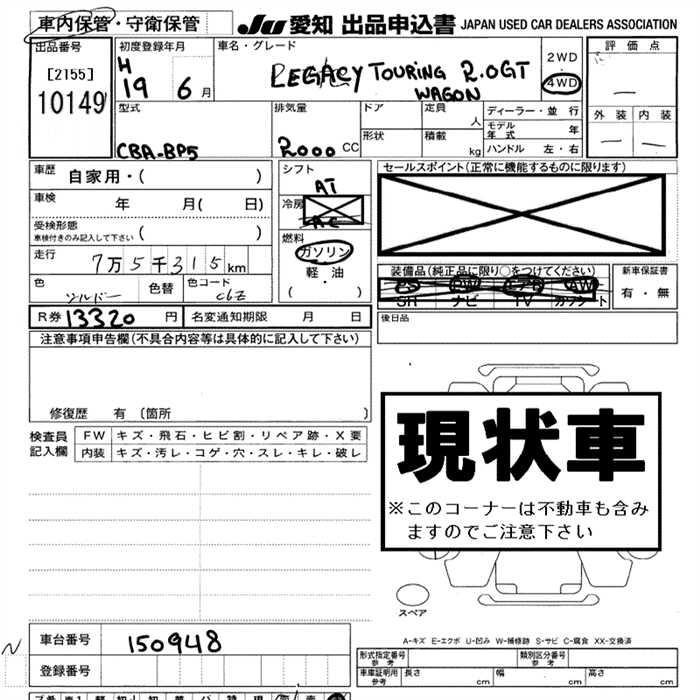 車内保管・守衛保管 JU 愛知 出品申込書 JAPAN USED CAR DEALERS ASSOCIATION
出品番号 初度登録年月 車名・グレード 2WD 評価点
[2155] H LEGACY TOURING 2.0GT 4WD
10149 19 6月 WAGON
外装 内装
型式 排気量 ドア 定員 人 ディーラー・並行
モデル年式 年
CBA-BP5 2000 CC 形状 積載 kg ハンドル 左・右
車歴 自家用・( ) シフト AT セールスポイント(正常に機能するものに限ります)
車検 年 月( 日) 冷房 AC
受検形態
車検付きのみ記入して下さい ( ) 燃料
走行 7万5千315km ガソリン 装備品(純正品に限り○をつけてください) 新車保証書
軽・油 PS PW エアB AW 有・無
色 色替 色コード C6Z ( ・ ) SR ナビ TV カワシート
R券 13320 円 名変通知期限 月 日 後日品
注意事項申告欄(不具合内容等は具体的に記入して下さい)
修復歴 有 [箇所 ]
検査員 FW キズ・飛石・ヒビ割・リペア跡・X要
記入欄 内装 キズ・汚レ・コゲ・穴・スレ・キレ・破レ
現状車
※このコーナーは不動車も含み
ますのでご注意下さい
スペア
A-キズ E-エクボ U-凹み W-補修跡 S-サビ C-腐食 XX-交換済
車台番号 150948
登録番号
形式指定番号 参考 類別区分番号 参考
車庫証明用 参考 長さ cm 幅 cm 高さ cm